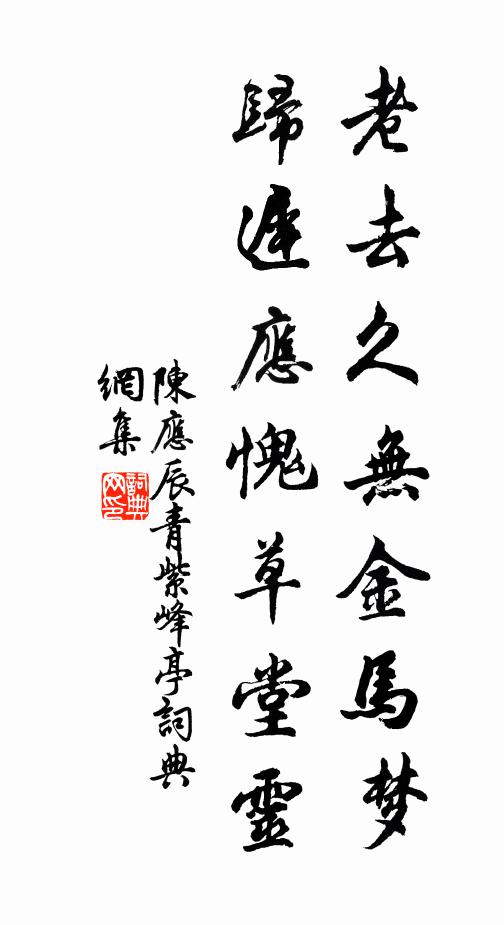 老去久無金馬梦
歸遲應愧草堂靈
陳應辰青紫峰亭詞典
網集
詞典
网印